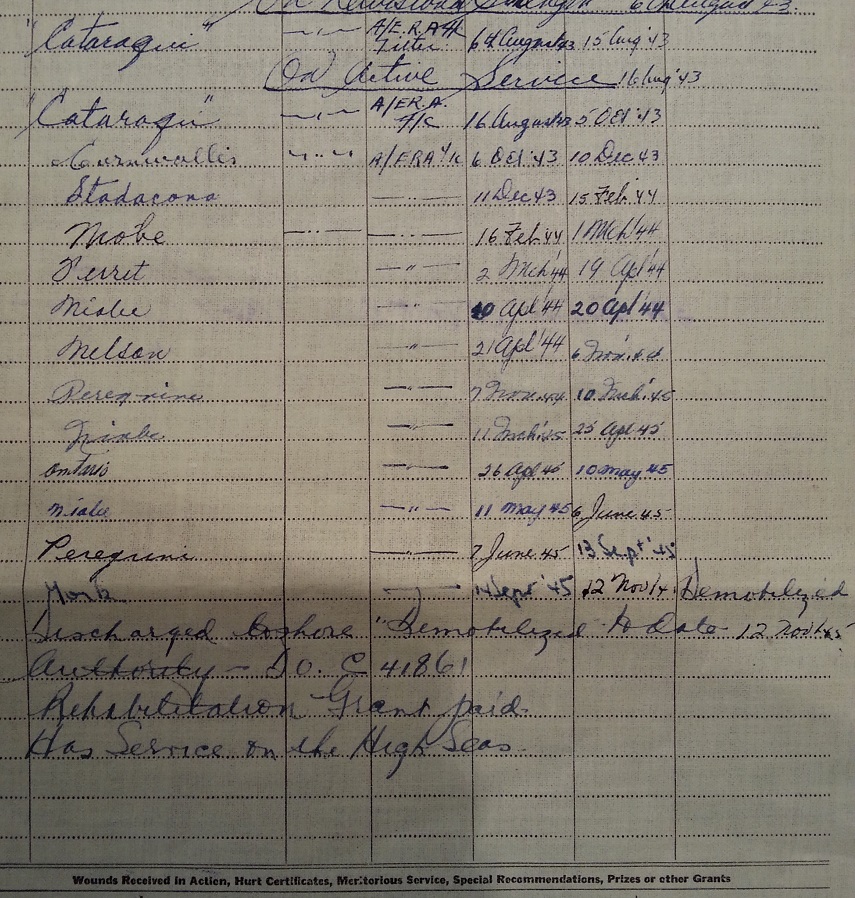 On Divisional Strength 6th August 43.
"Cataraqui" —"— A/E.R.A 4/c Fitter 6th August 43 15 Aug '43
On Active Service 16 Aug '43
"Cataraqui" —"— A/ER.A. 4/c 16 August 43 5 Oct '43
Cornwallis —"— A/ERA 4/c 6 Oct '43 10 Dec 43
Stadacona —"— 11 Dec 43 15 Feb. '44
Niobe —"— —"— 16 Feb '44 1 Mch '44
Ferret —"— 2 Mch '44 19 Apl '44
Niobe —"— Apl '44 20 Apl '44
Nelson —"— 21 Apl '44 6 Nov. 44
Peregrine —"— 7 Nov. 44 10 Mch '45
Niobe —"— 11 Mch '45 25 Apl 45
Ontario —"— 26 Apl 45 10 May 45
Niobe —"— 11 May 45 6 June 45
Peregrine —"— 7 June 45 13 Sept '45
York —"— 14 Sept '45 12 Nov Demobilized
Discharged Ashore "Demobilized" to date 12 Nov 45
Authority - D.O. C 41861
Rehabilitation Grant paid.
Has Service on the High Seas.
Wounds Received in Action, Hurt Certificates, Meritorious Service, Special Recommendations, Prizes or other Grants